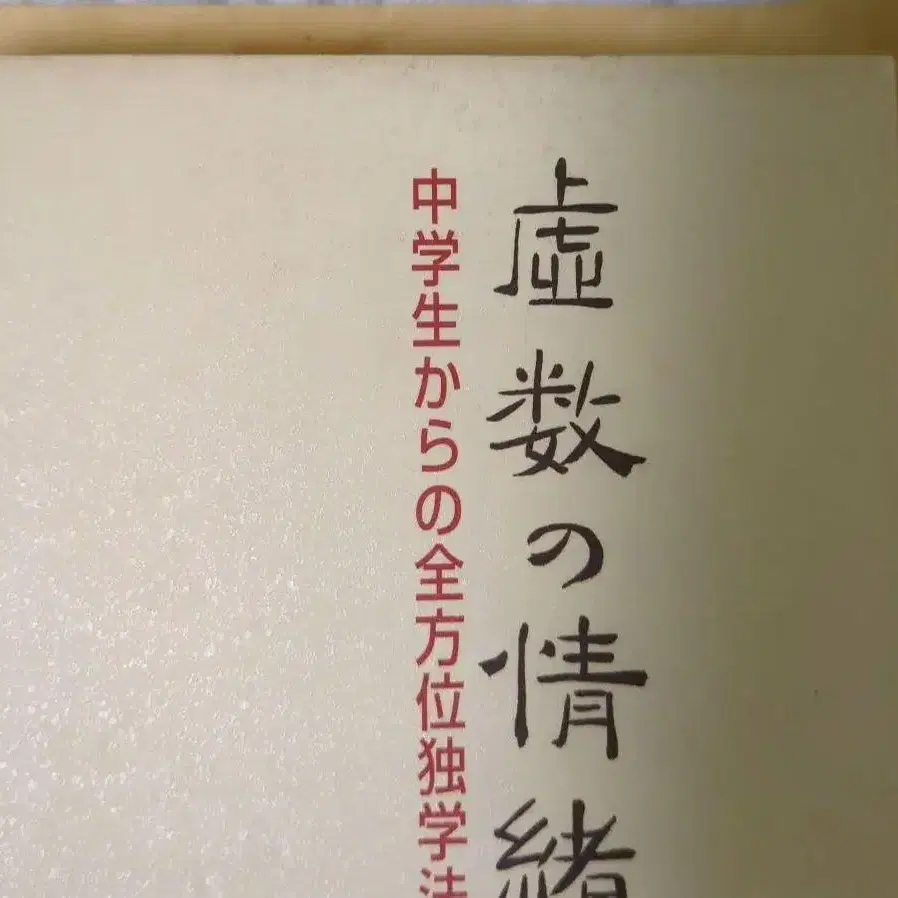 虚数の情緒
中学生からの全方位独学法